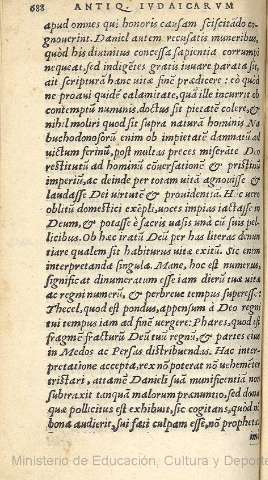 688 ANTIQ. IVDAICARVM
apud omnes qui honoris causam sciscitādo co-
gnouerint. Daniel autem recusatis muneribus,
quòd his diuinius concessa sapientia corrumpi
nequeat, sed indigētes gratis iuuare parata sit,
ait scripturā hanc vitæ finē prædicere: eò quòd
ne proaui quidē calamitate, quā ille incurrit ob
contemptū numinis, doctus sit pietatē colere, &
nihil moliri quod sit supra naturā hominis. Na
buchodonosorū enim ob impietatē damnatū ad
victum ferinū, post multas preces miserāte Deo
restitutū ad hominū cōuersationē & pristinū
imperiū, ac deinde per totam vitā agnouisse &
laudasse Dei virtutē & prouidentia. Hæc verò
oblitū domestici exēpli, voces impias iactasse in
Deum, & potasse è sacris vasis unà cū suis pel-
licibus. Ob hæc iratū Deū per has literas denun-
tiare qualem sit habiturus vitæ exitū. Sic enim
interpretanda singula. Mane, hoc est numerus,
significat dinumeratum esse iam dieru tuæ vitæ
ac regni numerū, & perbreue tempus superesse.
Thecel, quod est pondus, appensum à Deo regni
tui tempus iam ad finē vergere: Phares, quod est
fragmē fracturū Deū tuū regnū, & partes eius
in Medos ac Persas distribuendas. Hac inter-
pretatione accepta, rex nō poterat nō vehementer
tristari, attamē Danieli suā munificentiā non
subtraxit tanquā malorum prænuntio, sed dona
quæ pollicitus est exhibuit, sic cogitans, quòd nō
bona audierit, sui fati culpam esse, nō prophetæ
Ministerio de Educación, Cultura y Deporte